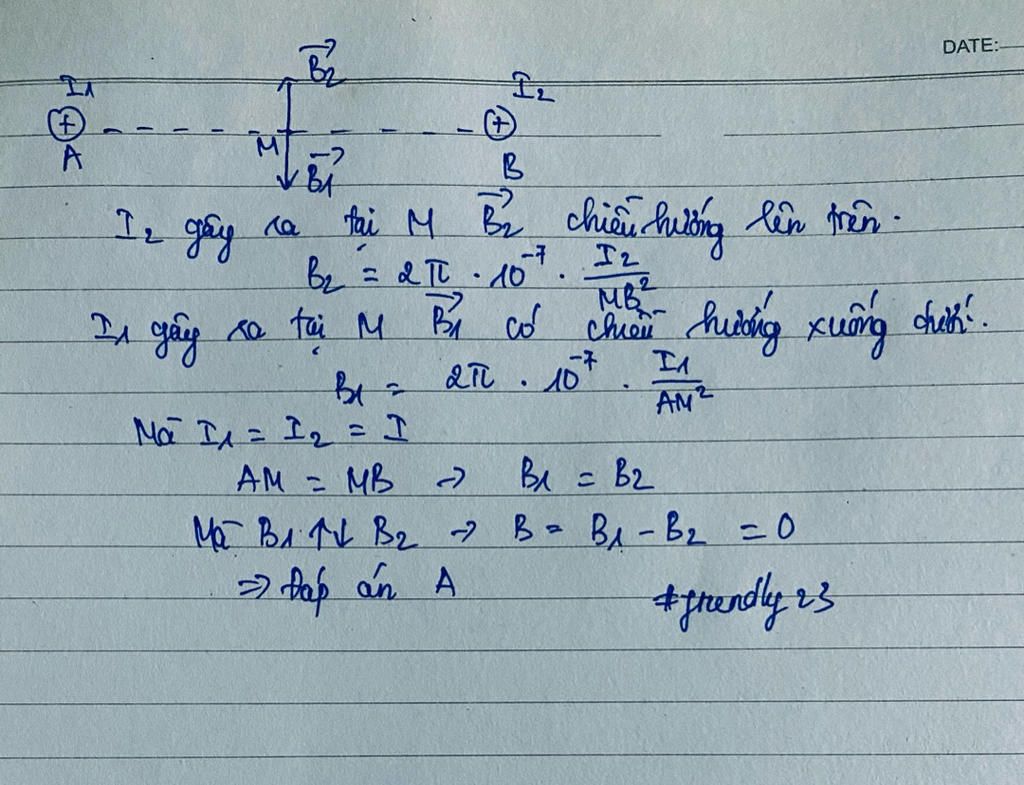 DATE:
I₁ B₂ I₂
A M B₁ B
I₂ gây ra tại M B₂ chiều hướng lên trên.
B₂ = 2π . 10⁻⁷ . I₂/MB²
I₁ gây ra tại M B₁ có chiều hướng xuống dưới.
B₁ = 2π . 10⁻⁷ . I₁/AM²
Mà I₁ = I₂ = I
AM = MB → B₁ = B₂
Mà B₁ ↑↓ B₂ → B = B₁ - B₂ = 0
⇒ Đáp án A